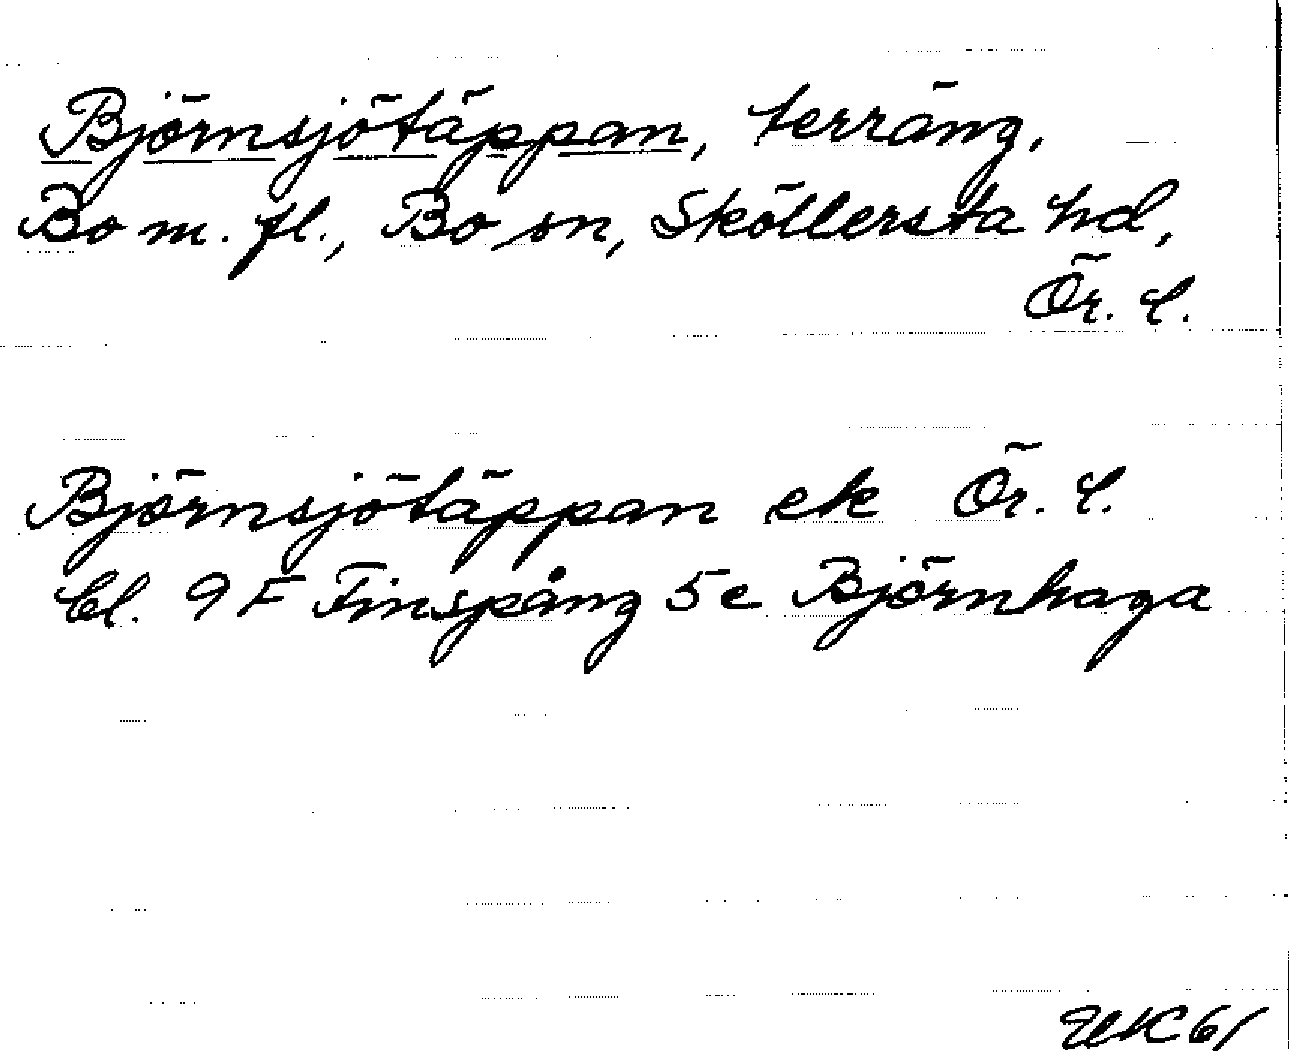 Björnsjötäppan, terräng.
Bo m. fl., Bo sn, Sköllersta hd,
Ör. l.
Björnsjötäppan ek Ör. l.
bl. 9 F Finspång 5 e Björnhaga